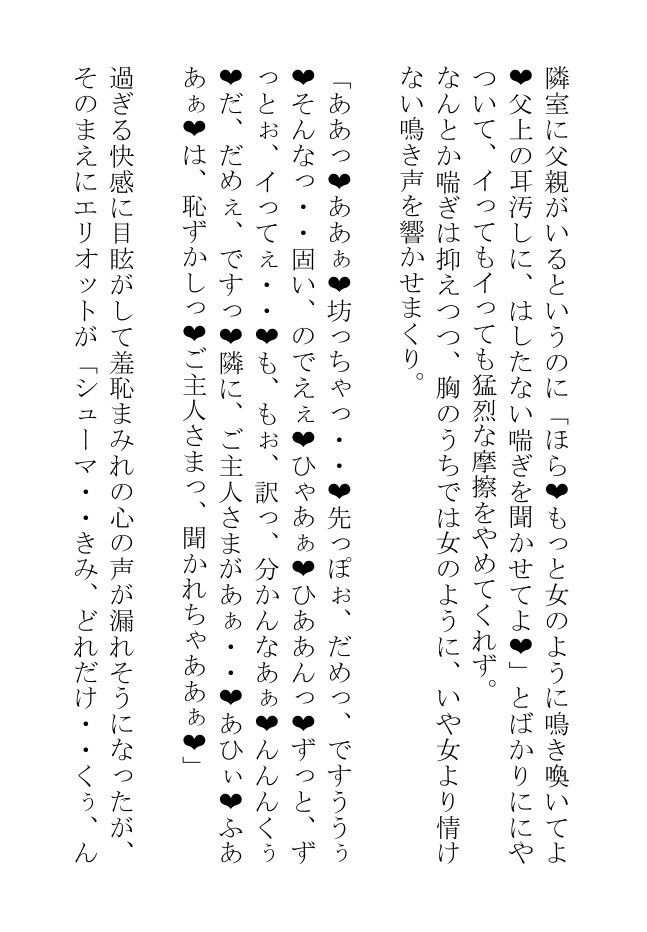 隣室に父親がいるというのに「ほら❤もっと女のように鳴き喚いてよ
❤父上の耳汚しに、はしたない喘ぎを聞かせてよ❤」とばかりににや
ついて、イってもイっても猛烈な摩擦をやめてくれず。
なんとか喘ぎは抑えつつ、胸のうちでは女のように、いや女より情け
ない鳴き声を響かせまくり。
「ああっ❤ああぁ❤坊っちゃっ・・❤先っぽぉ、だめっ、ですううぅ
❤そんなっ・・固い、のでえぇ❤ひゃあぁ❤ひああんっ❤ずっと、ず
っとぉ、イってぇ・・❤も、もぉ、訳っ、分かんなあぁ❤んんんくぅ
❤だ、だめぇ、ですっ❤隣に、ご主人さまがあぁ・・❤あひぃ❤ふあ
あぁ❤は、恥ずかしっ❤ご主人さまっ、聞かれちゃああぁ❤」
過ぎる快感に目眩がして羞恥まみれの心の声が漏れそうになったが、
そのまえにエリオットが「シューマ・・きみ、どれだけ・・くぅ、ん